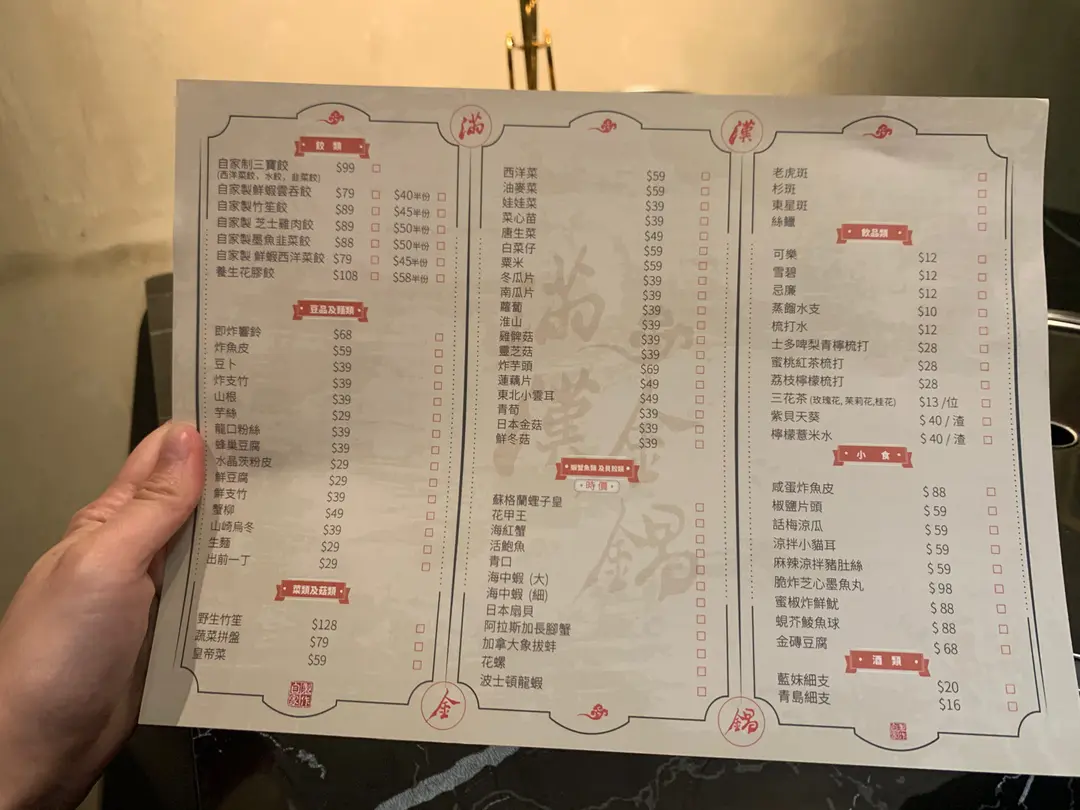 滿
漢
餃類
自家制三寶餃 $99 □
(西洋菜餃、水餃、韭菜餃)
自家製鮮蝦雲吞餃 $79 □ $40半份 □
自家製竹笙餃 $89 □ $45半份 □
自家製 芝士雞肉餃 $89 □ $50半份 □
自家製墨魚韭菜餃 $88 □ $50半份 □
自家製 鮮蝦西洋菜餃 $79 □ $45半份 □
養生花膠餃 $108 □ $58半份 □
豆品及麵類
即炸響鈴 $68 □
炸魚皮 $59 □
豆卜 $39 □
炸支竹 $39 □
山根 $39 □
芋絲 $29 □
龍口粉絲 $39 □
蜂巢豆腐 $39 □
水晶茨粉皮 $29 □
鮮豆腐 $29 □
鮮支竹 $39 □
蟹柳 $49 □
山崎烏冬 $39 □
生麵 $29 □
出前一丁 $29 □
菜類及菇類
野生竹笙 $128 □
蔬菜拼盤 $79 □
皇帝菜 $59 □
自家製作
西洋菜 $59 □
油麥菜 $59 □
娃娃菜 $39 □
菜心苗 $39 □
唐生菜 $49 □
白菜仔 $59 □
粟米 $59 □
冬瓜片 $39 □
南瓜片 $39 □
蘿蔔 $39 □
淮山 $39 □
雞髀菇 $39 □
靈芝菇 $39 □
炸芋頭 $69 □
蓮藕片 $49 □
東北小雲耳 $49 □
青筍 $39 □
日本金菇 $39 □
鮮冬菇 $39 □
蝦蟹魚類 及貝殼類
時價
蘇格蘭蟶子皇 □
花甲王 □
海紅蟹 □
活鮑魚 □
青口 □
海中蝦 (大) □
海中蝦 (細) □
日本扇貝 □
阿拉斯加長腳蟹 □
加拿大象拔蚌 □
花螺 □
波士頓龍蝦 □
滿漢金鍋
老虎斑 □
杉斑 □
東星斑 □
絲鱲 □
飲品類
可樂 $12 □
雪碧 $12 □
忌廉 $12 □
蒸餾水支 $10 □
梳打水 $12 □
士多啤梨青檸梳打 $28 □
蜜桃紅茶梳打 $28 □
荔枝檸檬梳打 $28 □
三花茶 (玫瑰花, 茉莉花,桂花) $13 /位 □
紫貝天葵 $ 40 / 渣 □
檸檬薏米水 $ 40 / 渣 □
小食
咸蛋炸魚皮 $ 88 □
椒鹽片頭 $ 59 □
話梅涼瓜 $ 59 □
涼拌小貓耳 $ 59 □
麻辣涼拌豬肚絲 $ 59 □
脆炸芝心墨魚丸 $ 98 □
蜜椒炸鮮魷 $ 88 □
蜆芥鯪魚球 $ 88 □
金磚豆腐 $ 68 □
酒類
藍妹細支 $20 □
青島細支 $16 □
自家製作
金
鍋